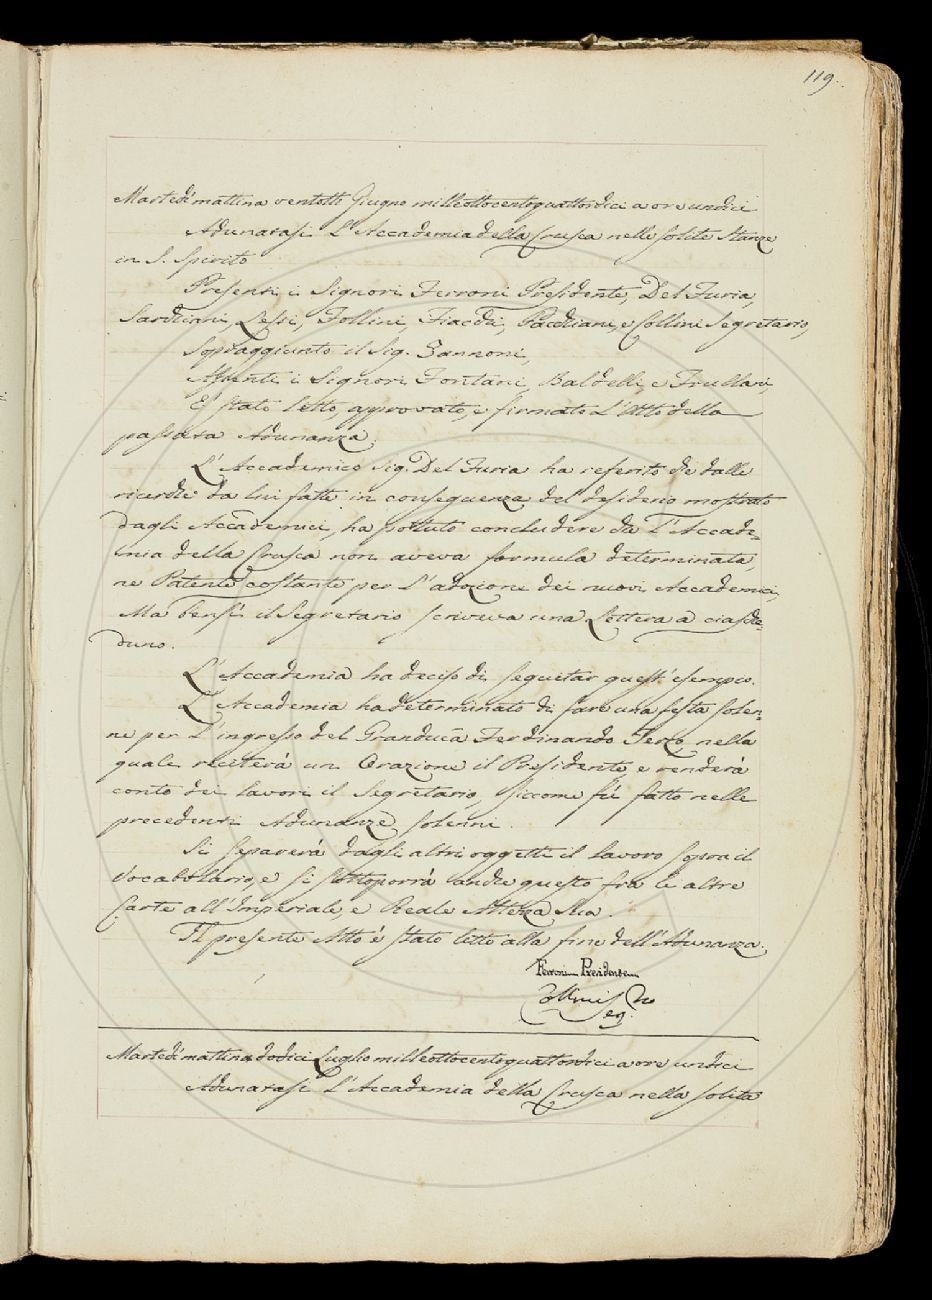 119.
Martedì mattina ventotto Giugno milleottocentoquattordici a ore undici
Adunatasi L'Accademia della Crusca nelle solite Stanze
in S. Spirito
Presenti i Signori Ferroni Presidente, Del Furia,
Sarchiani, Lessi, Follini, Fiacchi, Pacchiani, e Collini Segretario,
Sopraggiunto il Sig. Zannoni,
Assenti i Signori Fontani, Baldelli, e Frullani,
E' stato letto, approvato, e firmato L'Atto della
passata Adunanza.
L'Accademico Sig. Del Furia ha referito che dalle
ricerche da lui fatte in conseguenza del desiderio mostrato
dagli Accademici, ha potuto concludere che L'Accade-
mia della Crusca non aveva formula determinata,
ne Patente costante per L'adozione dei nuovi Accademici,
Ma bensì il Segretario scriveva una Lettera a ciasche-
duno.
L'Accademia ha deciso di seguitar quest'esempio.
L'Accademia ha determinato di fare una festa solen-
ne per L'ingresso del Granduca Ferdinando Terzo, nella
quale reciterà un Orazione il Presidente e renderà
conto dei lavori il Segretario, siccome fù fatto nelle
precedenti Adunanze solenni.
Si separerà dagli altri oggetti il lavoro sopra il
Vocabolario, e si sottoporrà anche questo fra le altre
Carte all'Imperiale, e Reale Altezza Sua.
Il presente Atto è stato letto alla fine dell'Adunanza.
Ferroni Presidente
Collini Seg.rio
Martedì mattina dodici Luglio milleottocentoquattordici a ore undici
Adunatasi L'Accademia della Crusca nella solita